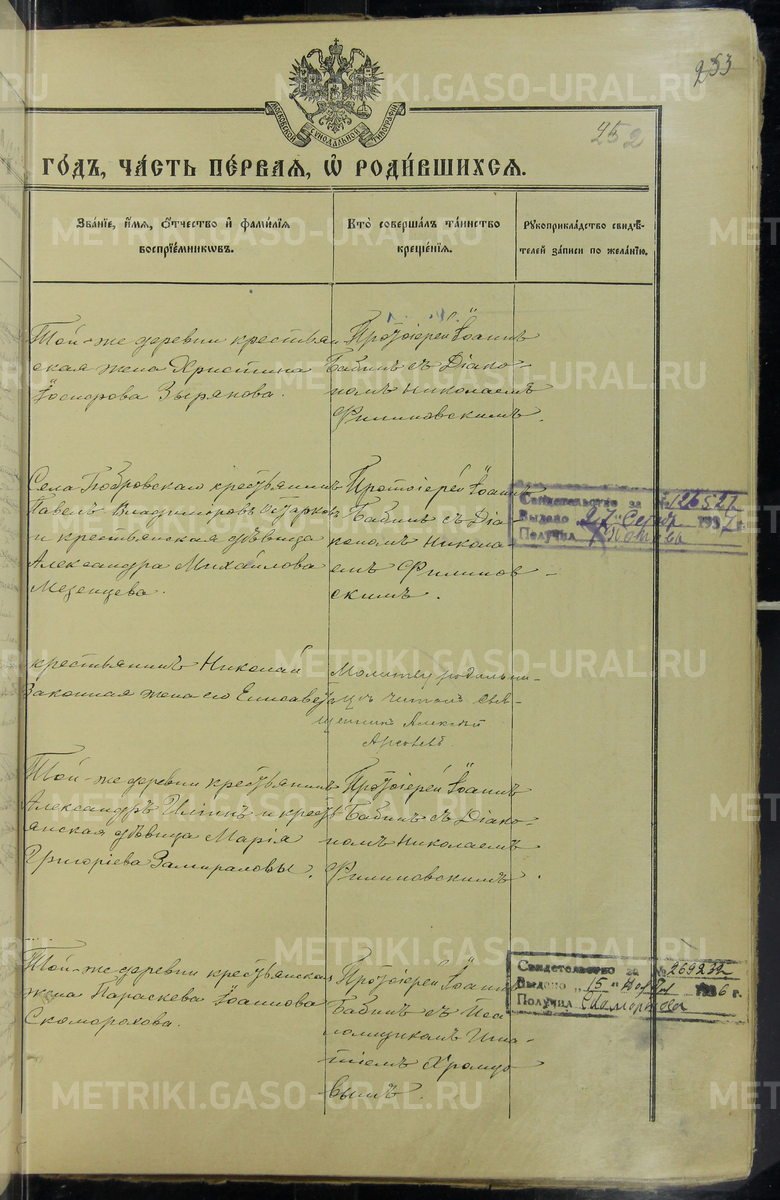 253
252
МОСКОВСКОЙ СѴНОДАЛЬНОЙ ТИПОГРАФІИ
ГО́ДЪ, ЧА́СТЬ ПЕ́РВАЯ, Ѽ РОДИ́ВШИХСЯ.
Зва́нїе, и҆́мя, ѻ҆́тчество и҆ фами́лїя
воспрїе́мникѡвъ.
Кто̀ соверша́лъ та́инство
креще́нїя.
Рꙋкоприкла́дство свидѣ́-
телей за́писи по жела́нїю.
Той-же деревни крестьян
ская жена Христина
Зырянова.
Протоіерей Іоаннъ
Бабинъ съ Діако-
номъ Николаемъ
Филиповскимъ.
Села Бобровскаго крестьянинъ
Павелъ Владиміровъ
и крестьянская дѣвица
Александра Михаилова
Мезенцева.
Протоіерей Іоаннъ
Бабинъ съ Діа-
кономъ Никола-
емъ Филипов-
скимъ.
Свидетельство за № 126527
Выдано „27" 1937 г.
Получил
крестьянинъ Николай
Законная жена его Елисавета
Молитву родильни-
цѣ читалъ Свя-
щенникъ Алексій
Той-же деревни крестьянинъ
Александръ Илiинъ и кресть
янская дѣвица Марія
Григоріева Замираловы.
Протоіерей Іоаннъ
Бабинъ съ Діако-
номъ Николаемъ
Филиповскимъ.
Той-же деревни крестьянская
жена Параскева Іоаннова
Скоморохова.
Протоіерей Іоаннъ
Бабинъ съ Пса-
ломщикомъ Игна-
тіемъ Хромцо-
вымъ.
Свидетельство за № 269232
Выдано „15" 1936 г.
Получил
METRIKI.GASO-URAL.RU